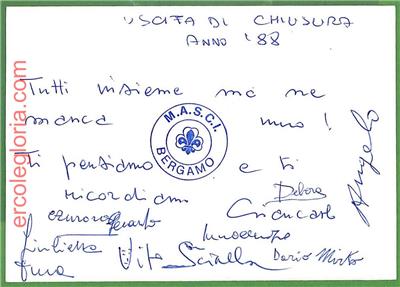 USCITA DI CHIUSURA
ANNO '88
Tutti insieme ma ne
manca uno!
M.A.S.C.I.
BERGAMO
Ti pensiamo e ti
ricordiamo
Debora
Angelo
Giancarlo
Innocenzo
Giulietta
Vito
Dario Mirko
ercolegloria.com